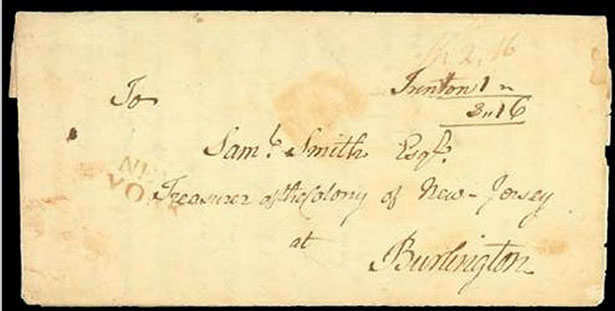 To
Trenton 1 "
3 " 16
Sam.l Smith Esqr.
NEW
YORK
Treasurer of the Colony of New-Jersey
at
Burlington